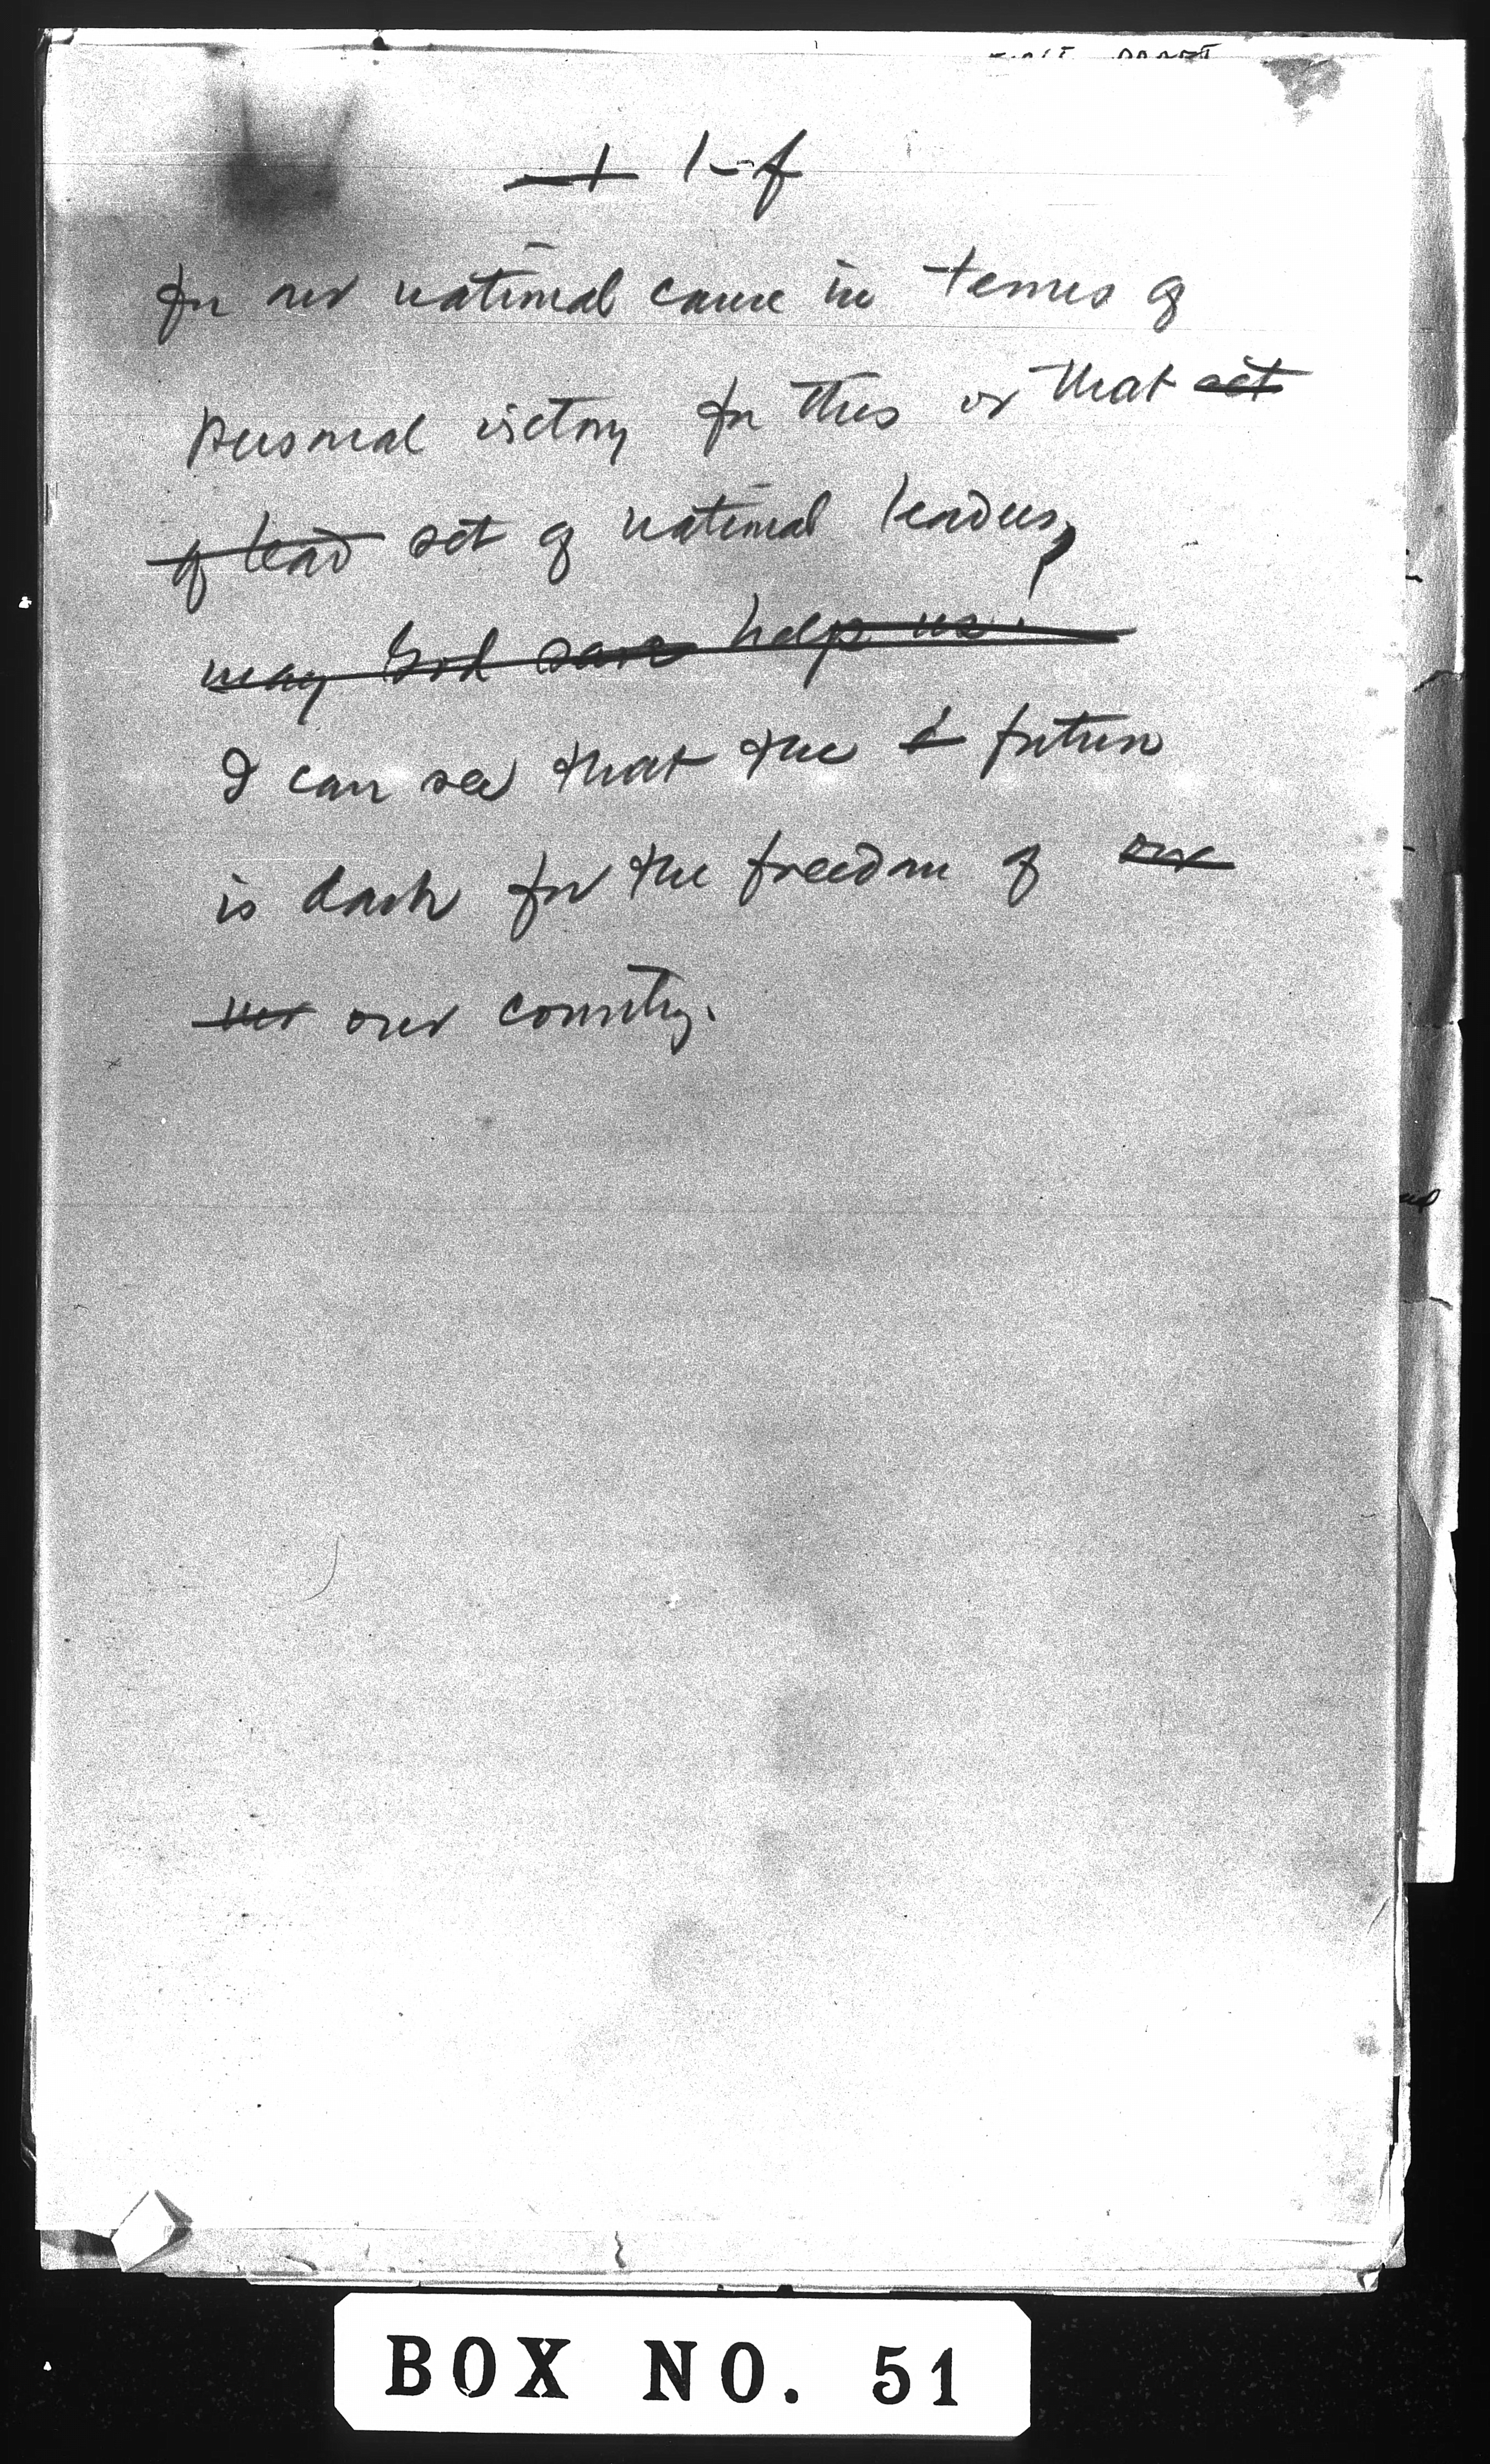 1-f
for our national cause in terms of
personal victory for this or that set
of lead set of national leaders,
may God save help us.
I can see that the f future
is dark for the freedom of our
our country.
BOX NO. 51